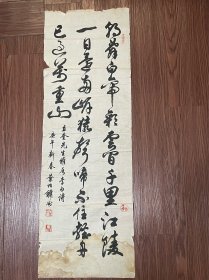 朝辭白帝彩雲間千里江陵
一日還兩岸猿聲啼不住輕舟
已過萬重山
先生雅李白詩
庚午新春